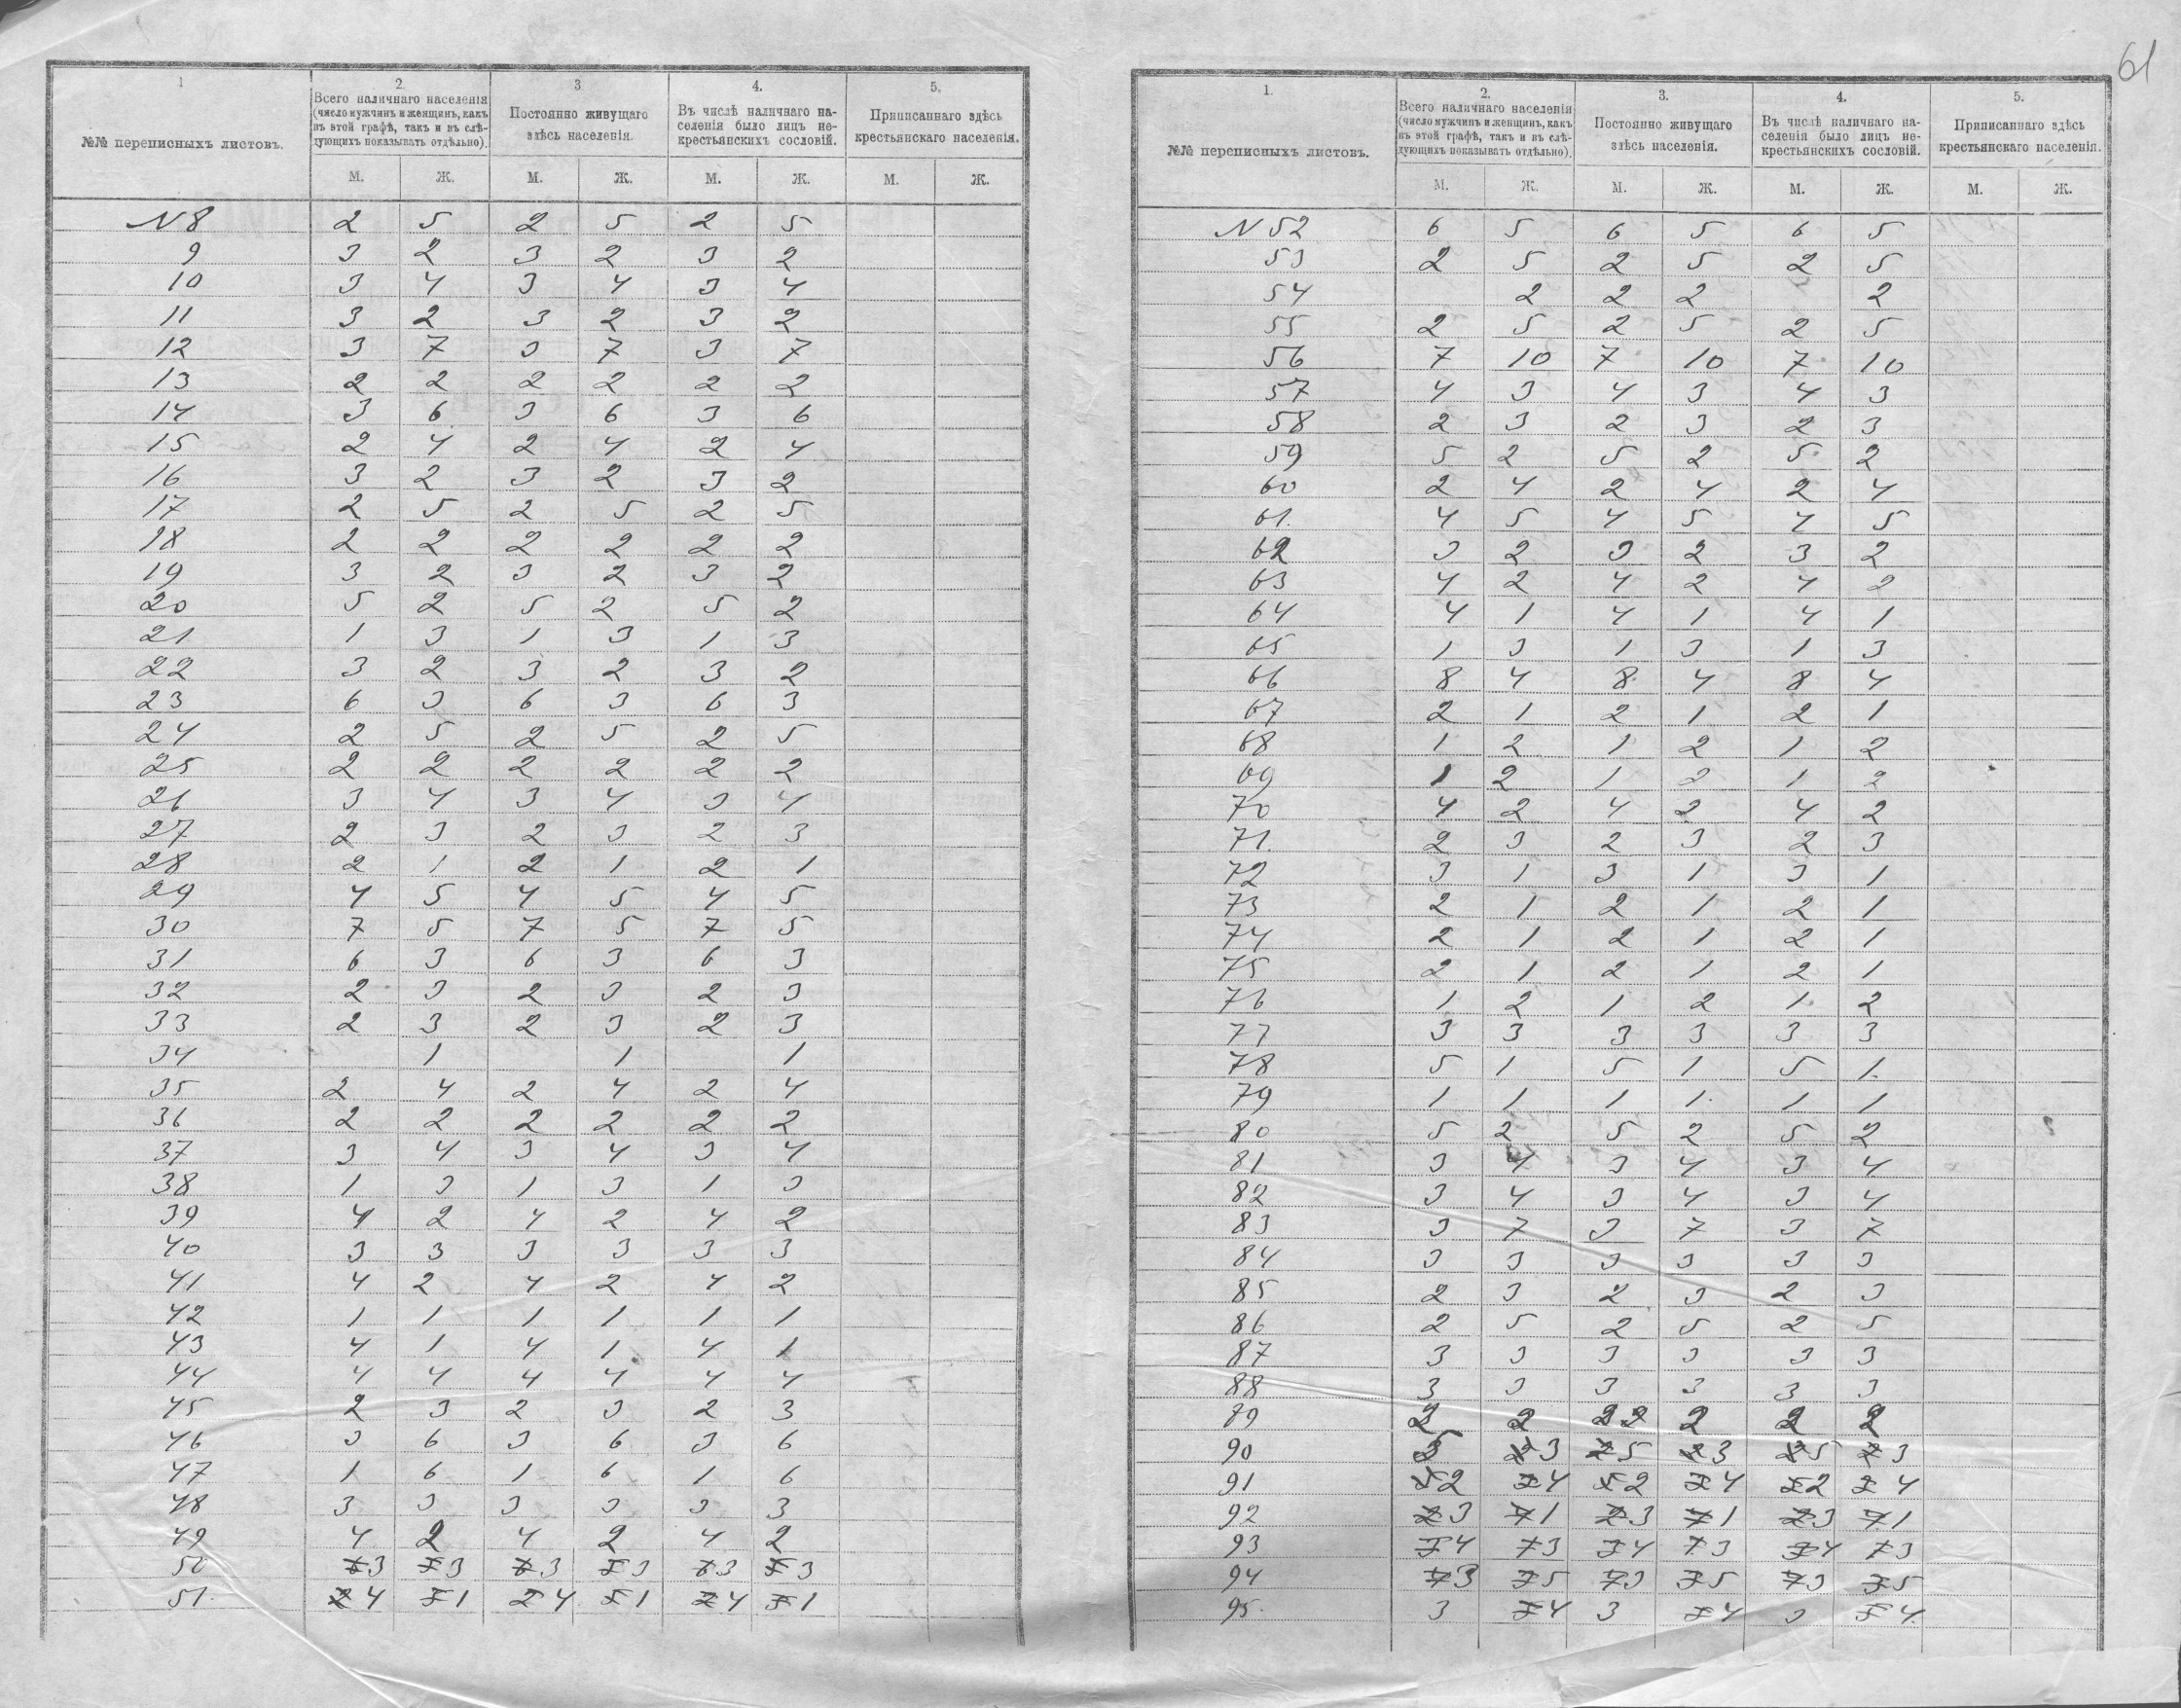 61
1 2. 3 4. 5.
№№ переписныхъ листовъ.
Всего наличнаго населенія
(число мужчинъ и женщинъ, какъ
въ этой графѣ, такъ и въ слѣ-
дующихъ показывать отдѣльно).
Постоянно живущаго
здѣсь населенія.
Въ числѣ наличнаго на-
селенія было лицъ не-
крестьянскихъ сословій.
Приписаннаго здѣсь
крестьянскаго населенія.
М. Ж. М. Ж. М. Ж. М. Ж.
N 8 2 5 2 5 2 5
9 3 2 3 2 3 2
10 3 4 3 4 3 4
11 3 2 3 2 3 2
12 3 7 3 7 3 7
13 2 2 2 2 2 2
14 3 6 3 6 3 6
15 2 4 2 4 2 4
16 3 2 3 2 3 2
17 2 5 2 5 2 5
18 2 2 2 2 2 2
19 3 2 3 2 3 2
20 5 2 5 2 5 2
21 1 3 1 3 1 3
22 3 2 3 2 3 2
23 6 3 6 3 6 3
24 2 5 2 5 2 5
25 2 2 2 2 2 2
26 3 4 3 4 3 4
27 2 3 2 3 2 3
28 2 1 2 1 2 1
29 4 5 4 5 4 5
30 7 5 7 5 7 5
31 6 3 6 3 6 3
32 2 3 2 3 2 3
33 2 3 2 3 2 3
34 1 1 1
35 2 4 2 4 2 4
36 2 2 2 2 2 2
37 3 4 3 4 3 4
38 1 3 1 3 1 3
39 4 2 4 2 4 2
40 3 3 3 3 3 3
41 4 2 4 2 4 2
42 1 1 1 1 1 1
43 4 1 4 1 4 1
44 4 4 4 4 4 4
45 2 3 2 3 2 3
46 3 6 3 6 3 6
47 1 6 1 6 1 6
48 3 3 3 3 3 3
49 4 2 4 2 4 2
50 3 3 3 3 3 3
51. 4 1 4 1 4 1
1. 2. 3. 4. 5.
№№ переписныхъ листовъ.
Всего наличнаго населенія
(число мужчинъ и женщинъ, какъ
въ этой графѣ, такъ и въ слѣ-
дующихъ показывать отдѣльно).
Постоянно живущаго
здѣсь населенія.
Въ числѣ наличнаго на-
селенія было лицъ не-
крестьянскихъ сословій.
Приписаннаго здѣсь
крестьянскаго населенія.
М. Ж. М. Ж. М. Ж. М. Ж.
N 52 6 5 6 5 6 5
53 2 5 2 5 2 5
54 2 2 2 2
55 2 5 2 5 2 5
56 7 10 7 10 7 10
57 4 3 4 3 4 3
58 2 3 2 3 2 3
59 5 2 5 2 5 2
60 2 4 2 4 2 4
61. 4 5 4 5 4 5
62 3 2 3 2 3 2
63 4 2 4 2 4 2
64 4 1 4 1 4 1
65 1 3 1 3 1 3
66 8 4 8 4 8 4
67 2 1 2 1 2 1
68 1 2 1 2 1 2
69 1 2 1 2 1 2
70 4 2 4 2 4 2
71. 2 3 2 3 2 3
72 3 1 3 1 3 1
73 2 1 2 1 2 1
74 2 1 2 1 2 1
75 2 1 2 1 2 1
76 1 2 1 2 1 2
77 3 3 3 3 3 3
78 5 1 5 1 5 1.
79 1 1 1 1. 1 1
80 5 2 5 2 5 2
81 3 4 3 4 3 4
82 3 4 3 4 3 4
83 3 7 3 7 3 7
84 3 3 3 3 3 3
85 2 3 2 3 2 3
86 2 5 2 5 2 5
87 3 3 3 3 3 3
88 3 3 3 3 3 3
89 2 2 2 2 2 2
90 5 3 5 3 5 3
91 2 4 2 4 2 4
92 3 1 3 1 3 1
93 4 3 4 3 4 3
94 3 5 3 5 3 5
95. 3 4 3 4 3 4.